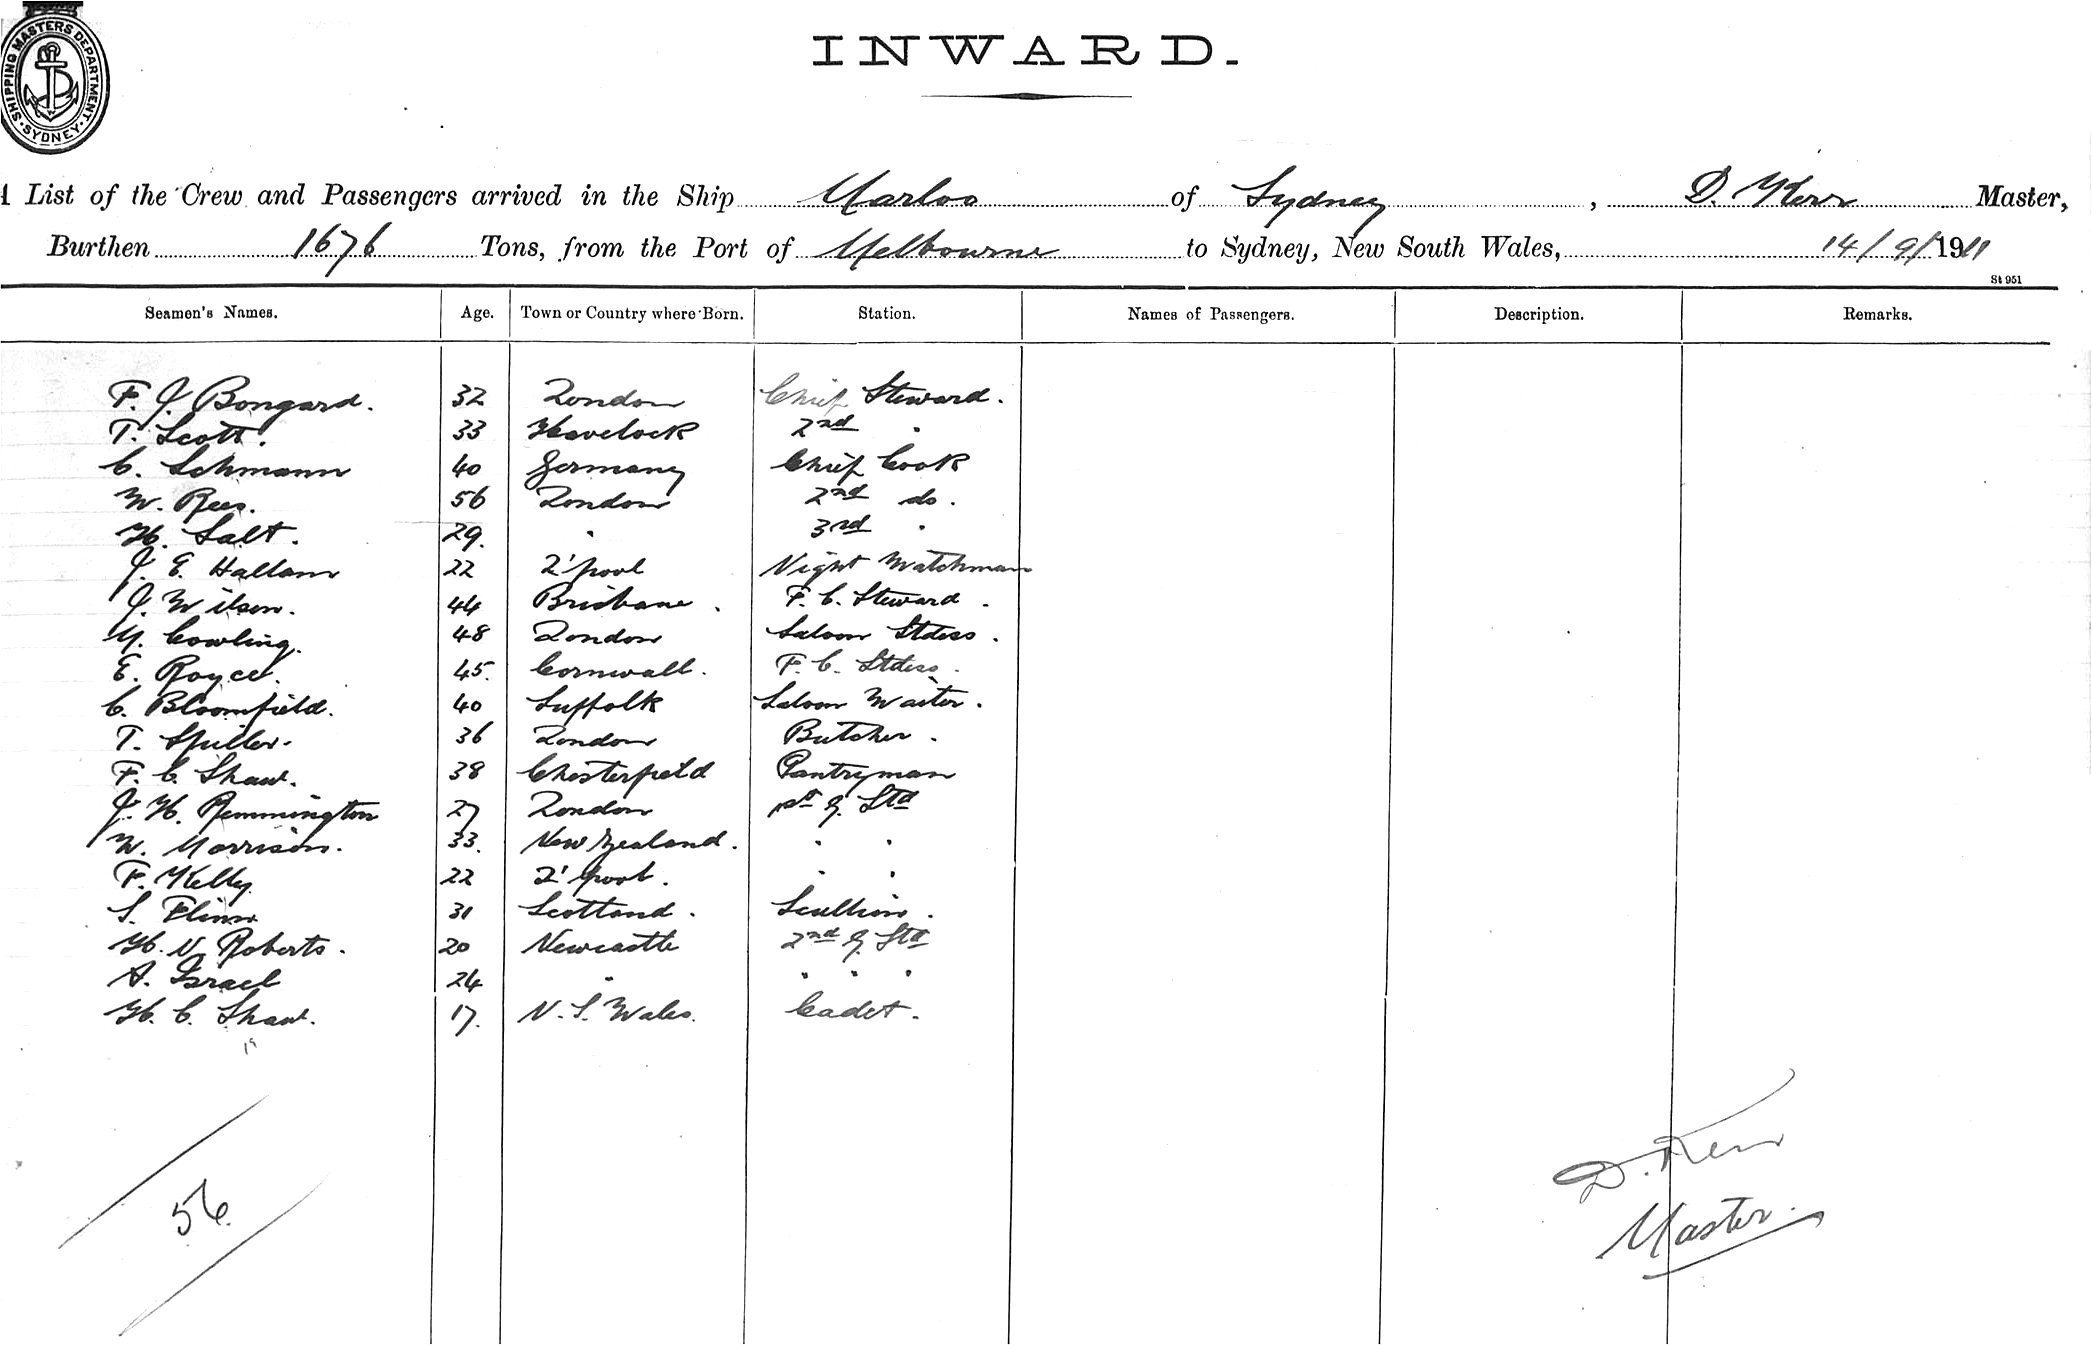 SHIPPING MASTERS DEPARTMENT. SYDNEY.
INWARD.
List of the Crew and Passengers arrived in the Ship Marloo of Sydney, D. Kerr Master,
Burthen 1676 Tons, from the Port of Melbourne to Sydney, New South Wales, 14/9/1911
St 951
Seamen's Names. Age. Town or Country where Born. Station. Names of Passengers. Description. Remarks.
F. J. Bongard. 32 London Chief Steward.
T. Scott. 33 Havelock 2nd "
C. Lehmann 40 Germany Chief Cook
W. Rees. 56 London 2nd do.
H. Salt. 29. " 3rd "
J. E. Hallam 22 L'pool Night Watchman
J. Wilson. 44 Brisbane. F. C. Steward.
M. Cowling. 48 London Saloon Stdess.
E. Royce. 45. Cornwall. F. C. Stdess.
C. Bloomfield. 40 Suffolk Saloon Waiter.
T. Spiller. 36 London Butcher.
F. C. Shaw. 38 Chesterfield Pantryman
J. H. Remmington 27 London 1st G. Std
W. Morrison. 33. New Zealand. " "
F. Kelly 22 L'pool. " "
S. Flinn 31 Scotland. Scullion.
H. V. Roberts. 20 Newcastle 2nd G. Std
A. Israel 24 " " " "
H. C. Shaw. 17. N. S. Wales. Cadet.
19
56
D. Kerr
Master.